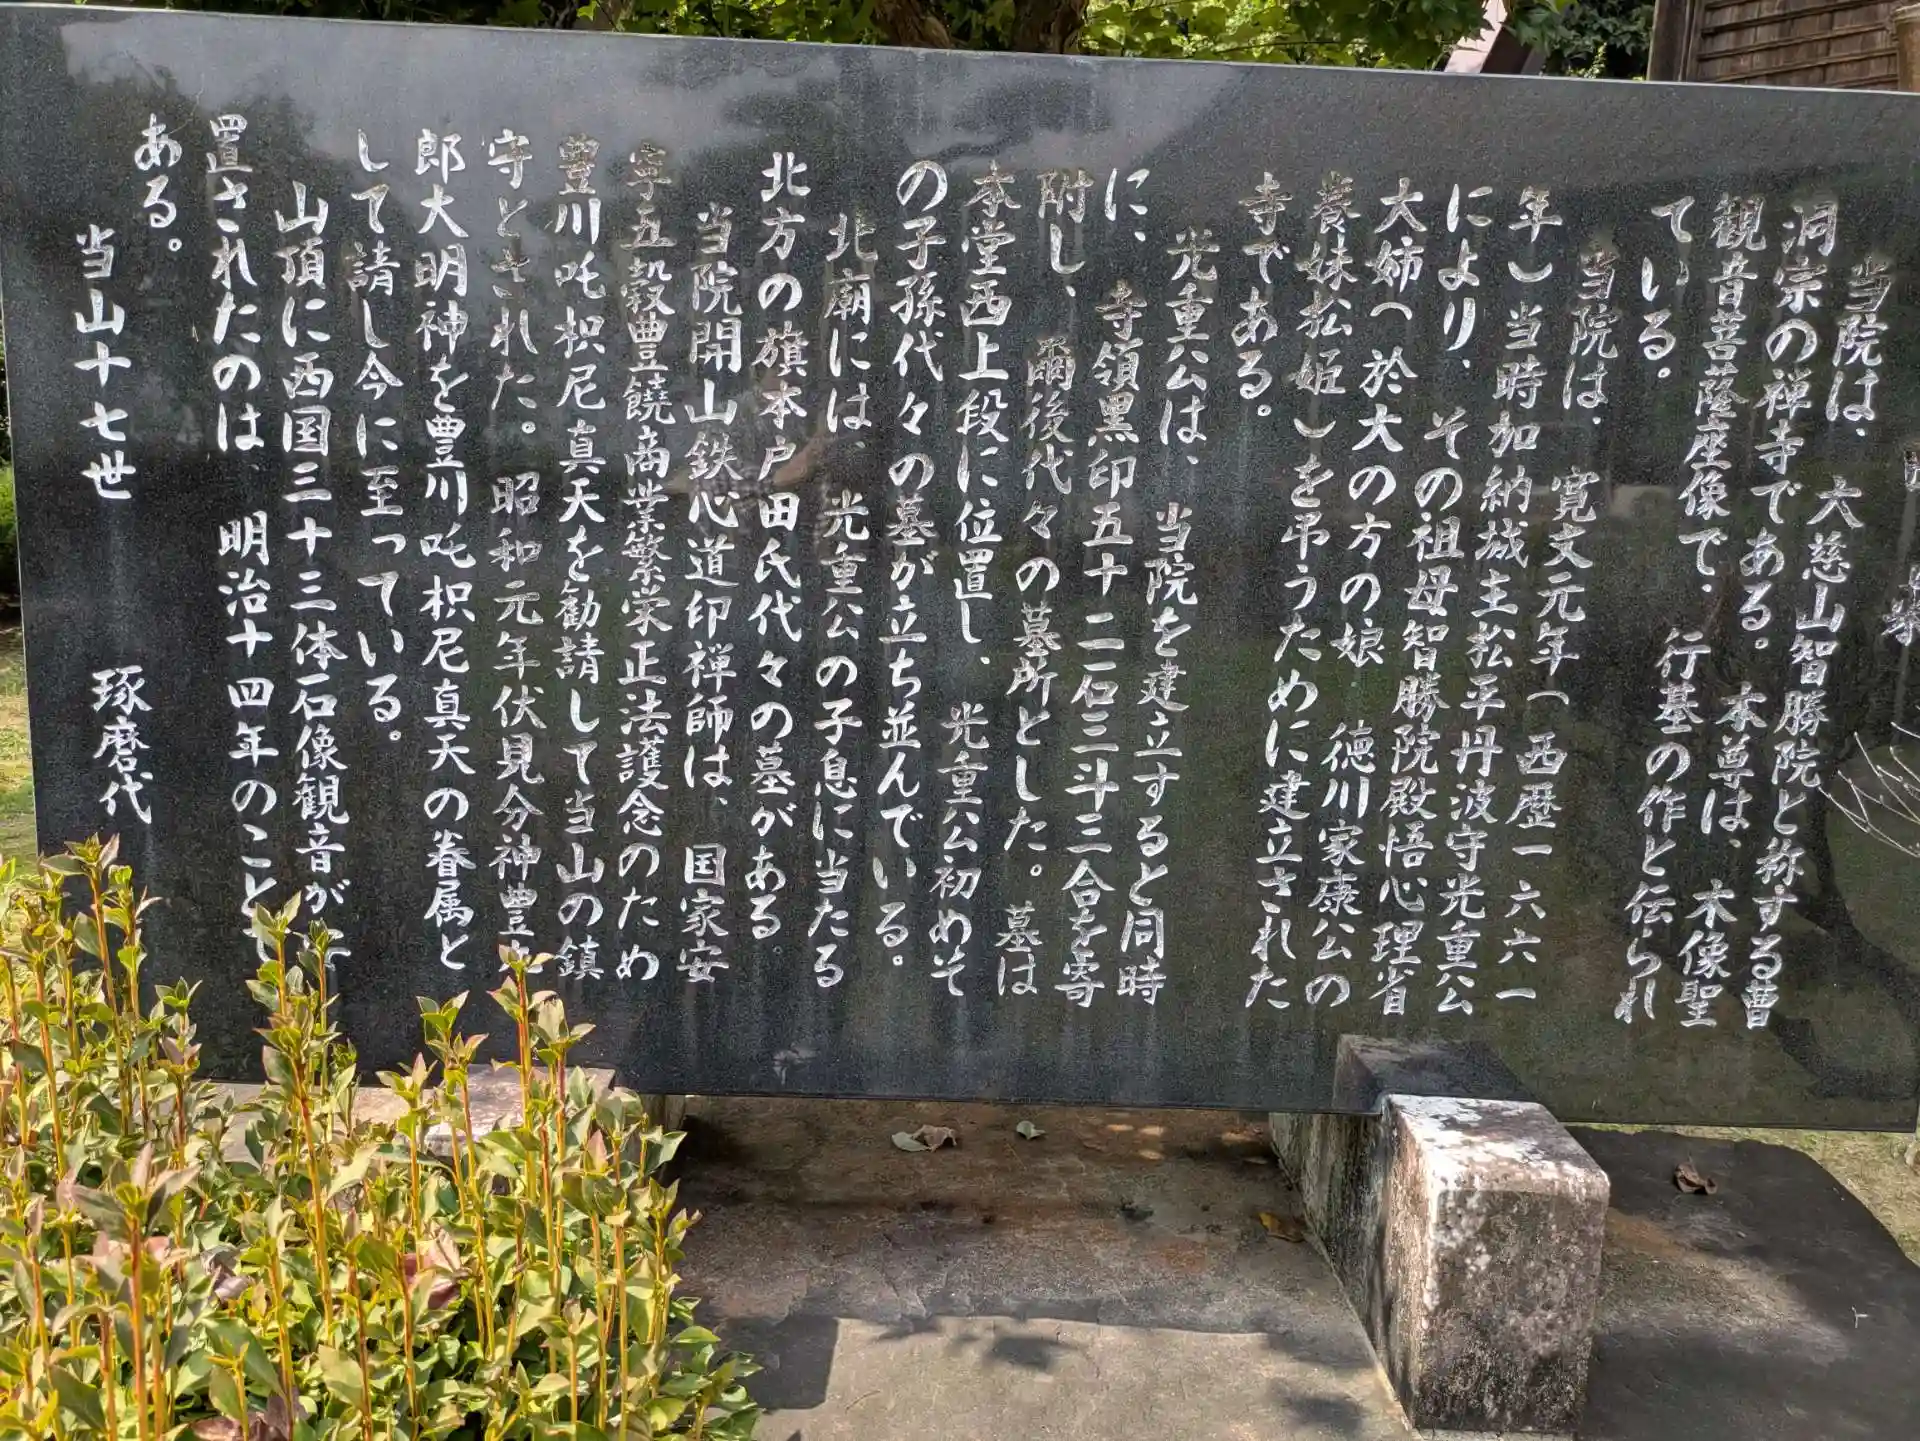 当院は、大慈山智勝院と称する曹
洞宗の禅寺である。本尊は、木像聖
観音菩薩座像で、行基の作と伝られ
ている。
当院は、寛文元年(西歴一六六一
年)当時加納城主松平丹波守光重公
により、その祖母智勝院殿悟心理省
大姉(於大の方の娘 徳川家康公の
養妹松姫)を弔うために建立された
寺である。
光重公は、当院を建立すると同時
に、寺領黒印五十二石三斗三合を寄
附し、爾後代々の墓所とした。墓は
本堂西上段に位置し、光重公初めそ
の子孫代々の墓が立ち並んでいる。
北廟には、光重公の子息に当たる
北方の旗本戸田氏代々の墓がある
当院開山鉄心道印禅師は、国家安
寧五穀豊饒商業繁栄正法護念のため
豊川吒枳尼真天を勧請して当山の鎮
守とされた。昭和元年伏見分神豊
郎大明神を豊川吒枳尼真天の眷属と
して請し今に至っている。
山頂に西国三十三体石像観音が安
置されたのは、明治十四年のことで
ある。
当山十七世 琢磨代